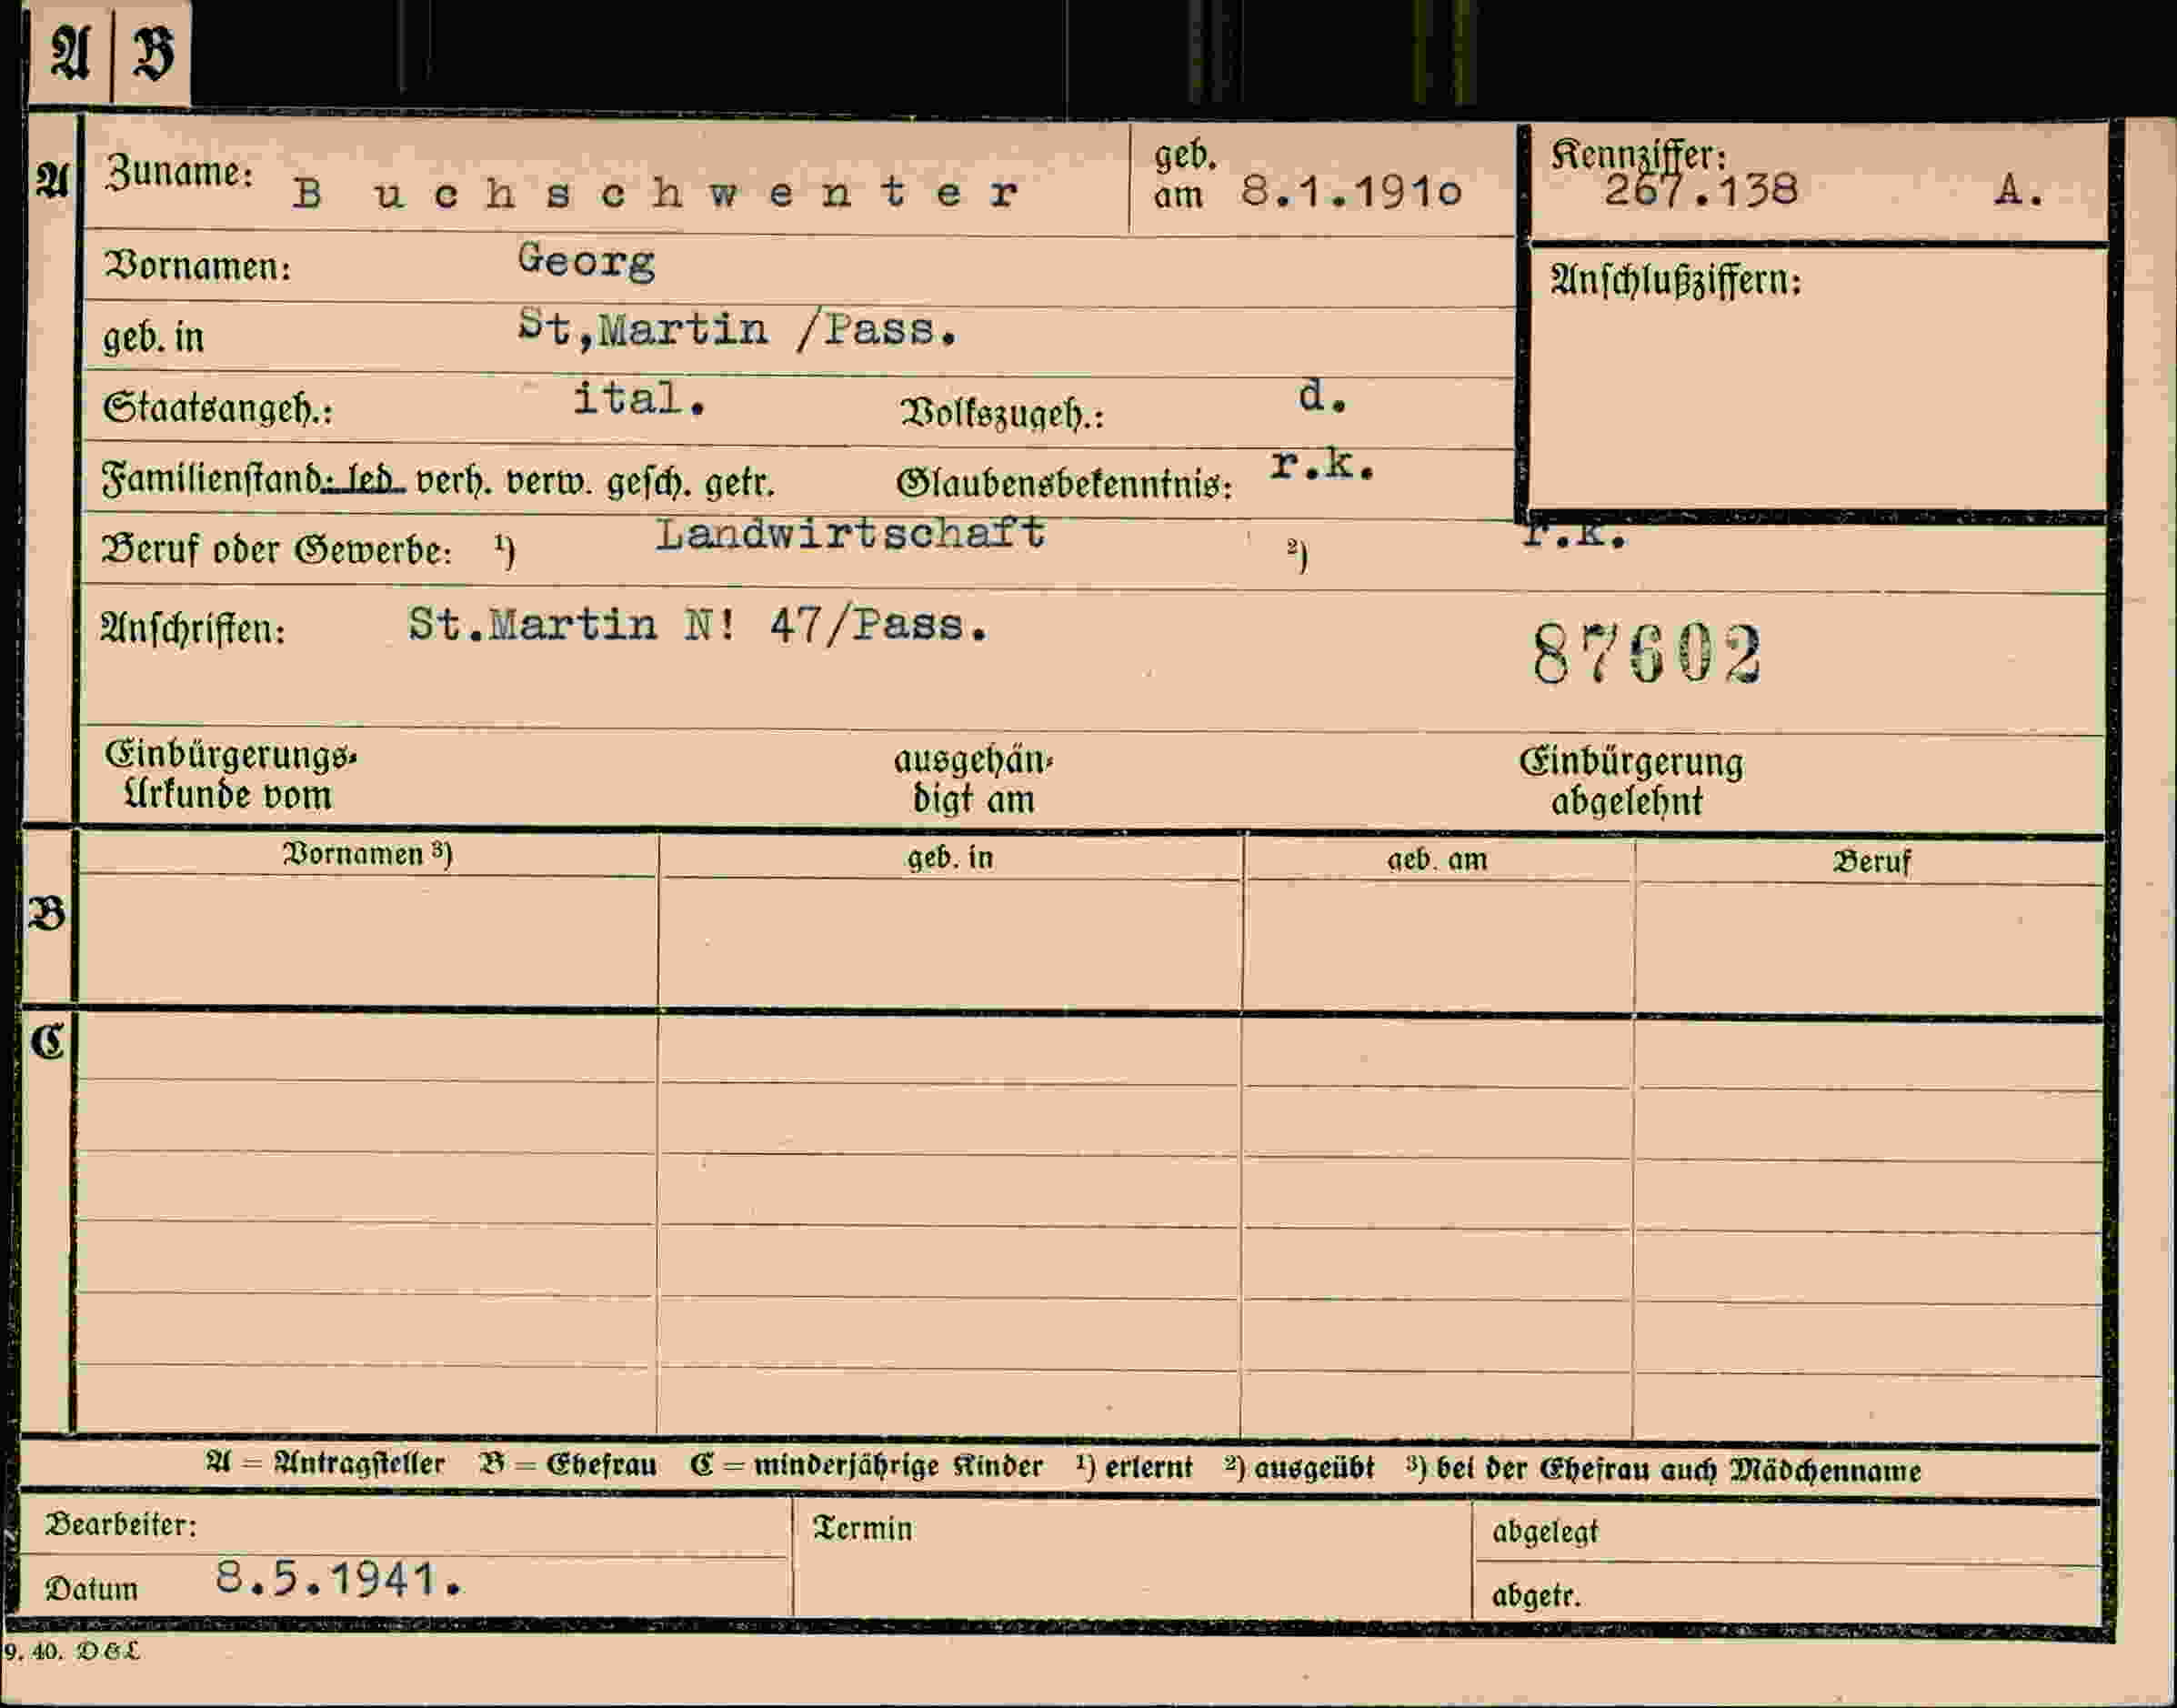 A B
A Zuname: Buchschwenter geb. am 8.1.1910 Kennziffer: 267.138 A.
Vornamen: Georg Anschlußziffern:
geb. in St,Martin /Pass.
Staatsangeh.: ital. Volkszugeh.: d.
Familienstand: led. verh. verw. gesch. getr. Glaubensbekenntnis: r.k.
Beruf oder Gewerbe: ¹) Landwirtschaft ²) r.k.
Anschriften: St.Martin N! 47/Pass. 87602
Einbürgerungs-
Urkunde vom
ausgehän-
digt am
Einbürgerung
abgelehnt
Vornamen ³) geb. in geb. am Beruf
B
C
A = Antragsteller B = Ehefrau C = minderjährige Kinder ¹) erlernt ²) ausgeübt ³) bei der Ehefrau auch Mädchenname
Bearbeiter: Termin abgelegt
Datum 8.5.1941. abgetr.
9. 40. D & L